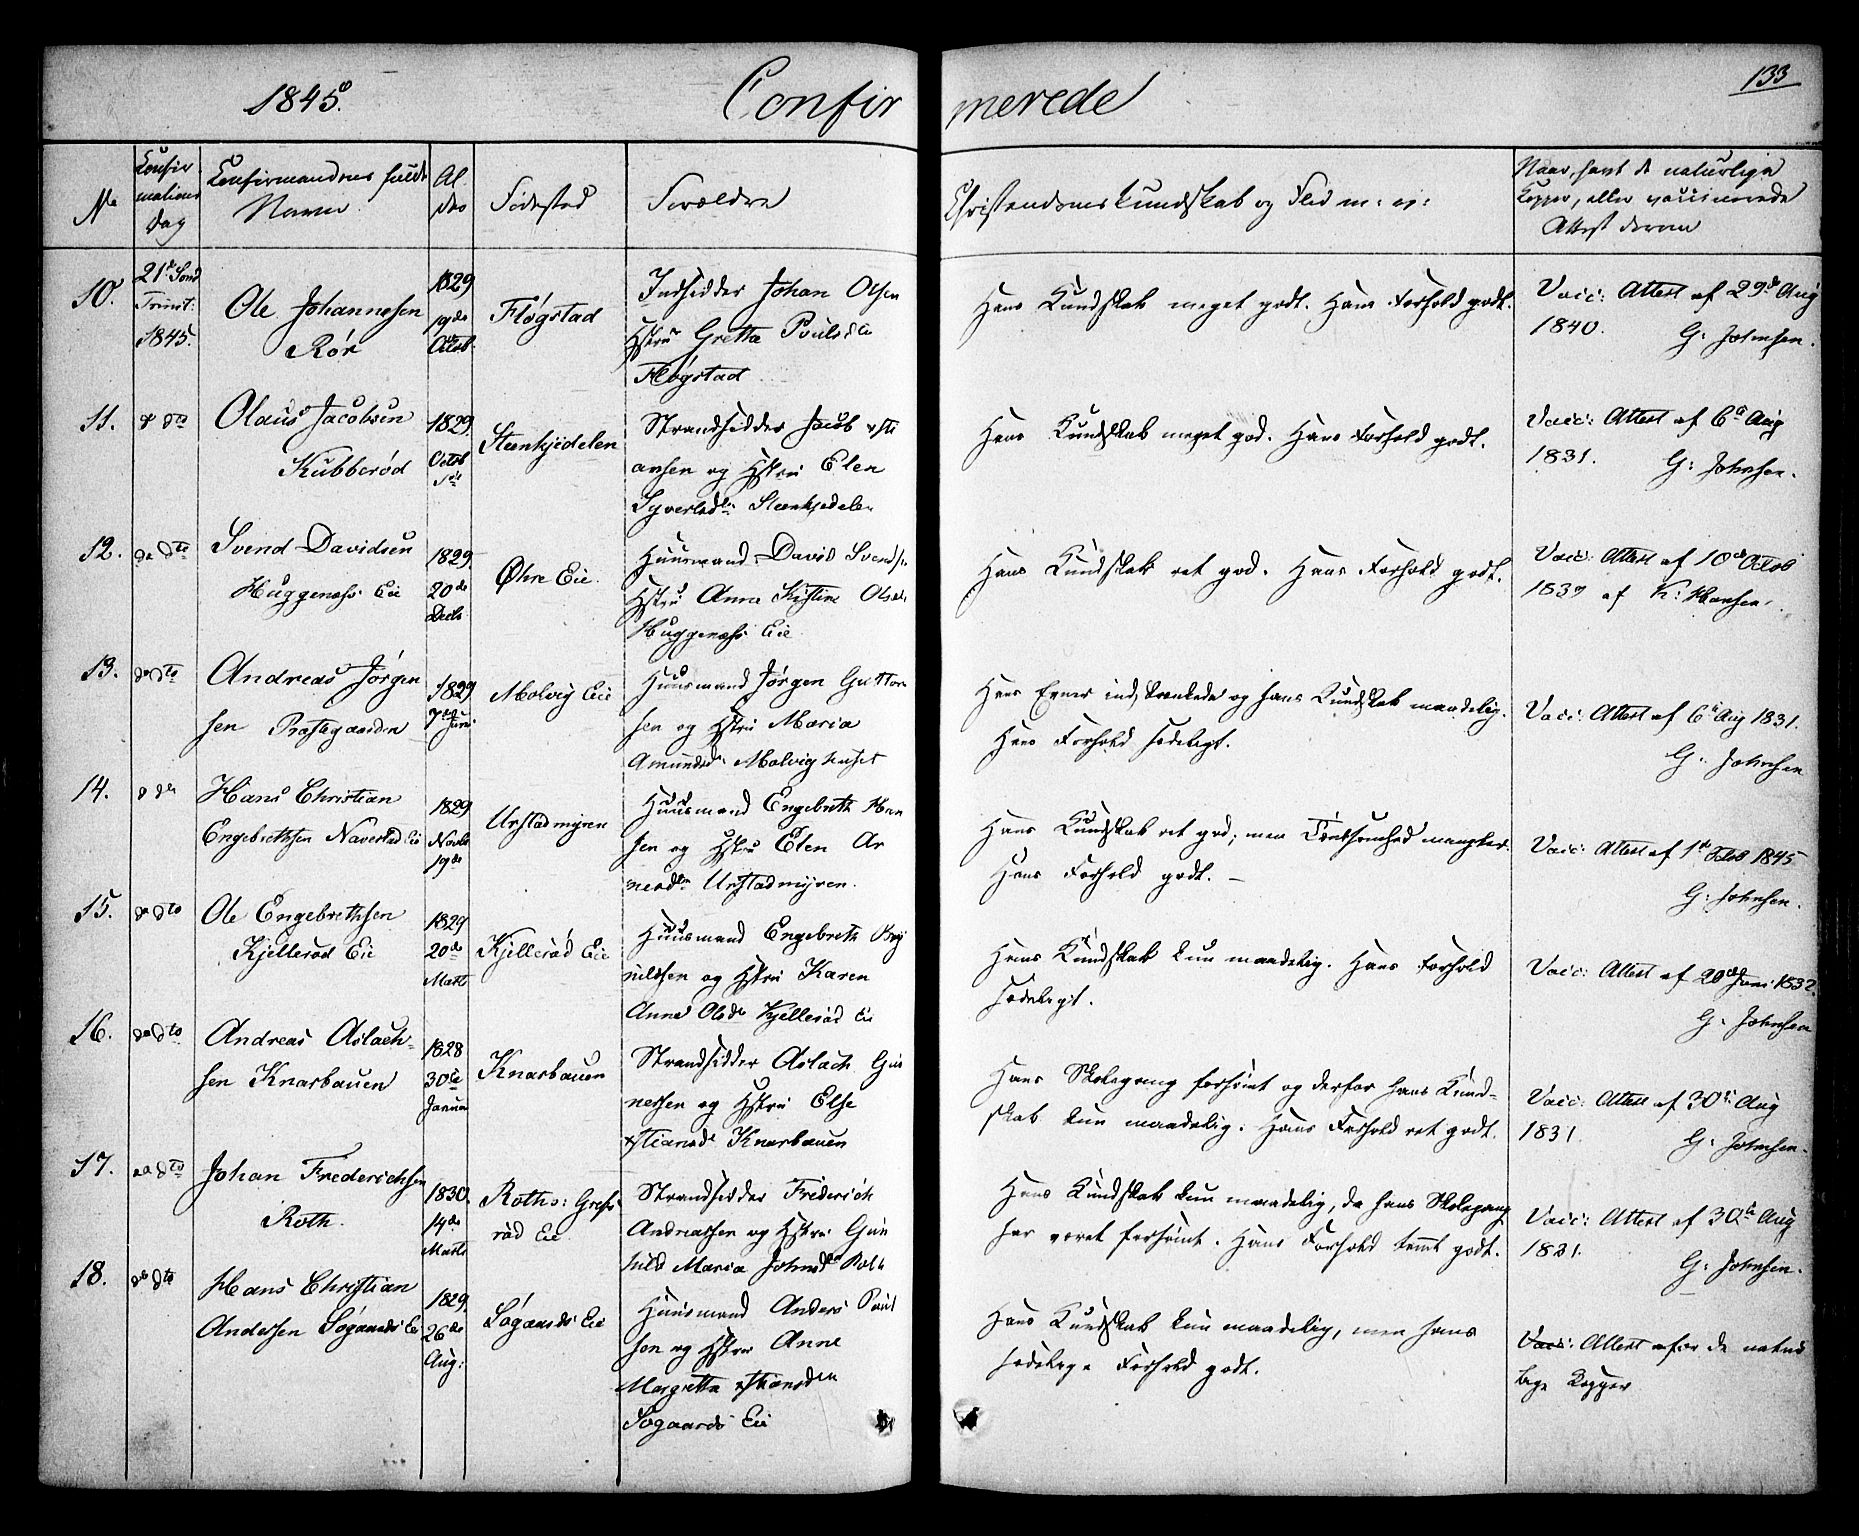 1845.
Confirmerede
133
No
Confir
mations
Dag
Confirmandens fulde
Navn
Al
der
Födested
Forældre
Christendomskundskab og Flid m: v:
Naar, havt de naturlige
Kopper, eller vaccinerede
Attest derom
10.
21de Sönd
Trinit:
1845.
Ole Johannesen
Rör
1829
19de
Octob
Flögstad
Indsidder Johan Olsen
Hstru Gretta Poulsdtr
Flögstad
Hans Kundskab meget godt. Hans Forhold godt.
Vacc: Attest af 29de Aug
1840.
G: Johnsen.
11.
do dto
Olaus Jacobsen
Kubberöd
1829
Octob
Steenkjedelen
Strandsidder Jacob Chri
ansen og Hstru Elen
Syversdtr Steenkjedelen
Hans Kundskab meget god. Hans Forhold godt.
Vacc: Attest af 6te Aug
1831.
G: Johnsen.
12.
do dto
Svend Davidsen
Huggenæss Eie
1829
20de
Decb.
Öhre Eie.
Huusmand David Svends
Hstru Anne Kistine Olsdtr
Huggenæss Eie
Hans Kundskab ret god. Hans Forhold godt.
Vacc: Attest af 10de Octob
1839 af K: Hansen.
13.
do dto
Andreas Jörgen
sen Præstegaarden
1829
7de Juni
Molvig Eie
Huusmand Jörgen Guttor
sen og Hstru Maria
Amundsd: Molvighuset
Hans Evner indskrænkede og hans Kundskab maadelig.
Hans Forhold sædeligt.
Vacc: Attest af 6te Aug 1831.
G: Johnsen
14.
do dto
Hans Christian
Engebrethsen Naverstad Eie
1829
Novbr
19de
Urstadmyren
Huusmand Engebreth Han
sen og Hstru Elen Ar
nesdtr Urstadmyren.
Hans Kundskab ret god; men Tænksomhed mangler.
Hans Forhold godt. –
Vacc: Attest af 1te Febr 1845
G: Johnsen.
15.
do dto
Ole Engebrethsen
Kjelleröd Eie
1829
20de
Marts
Kjelleröd Eie
Huusmand Engebreth Bry
nildsen og Hstru Karen
Anne Olsdtr Kjelleröd Eie
Hans Kundskab kun maadelig. Hans Forhold
sædeligt.
Vacc: Attest af 20de Juni 1832.
G. Johnsen
16.
do dto
Andreas Aslach-
sen Knarbauen
1828
30te
Januar
Knarbauen
Strandsidder Aslach Gun
nersen og Hstru Else
Xtiansdtr Knarbauen
Hans Skolegang forsömt og derfor hans Kund-
skab kun maadelig. Hans Forhold ret godt.
Vacc: Attest af 30te Aug
1831.
G: Johnsen.
17.
do dto
Johan Frederichsen
Roth.
1830.
14de
Marts
Roths: Gress
röd Eie
Strandsidder Frederich
Andreassen og Hstru Gun
hild Maria Johnsdtr Roth
Hans Kundskab kun maadelig, da hans Skolegang
har været forsömt. Hans Forhold temt godt.
Vacc: Attest af 30te Aug
1831.
G: Johnsen.
18.
do dto
Hans Christian
Andersen Sögaards Eie
1829
26de
Aug:
Sögaards Eie
Huusmand Anders Paul
sen og Hstru Anne
Margretta Xtiansdtr
Sögaards Eie
Hans Kundskab kun maadelig, men hans
sædelige Forhold godt.
Vacc: Attest for de natur
lige Kopper